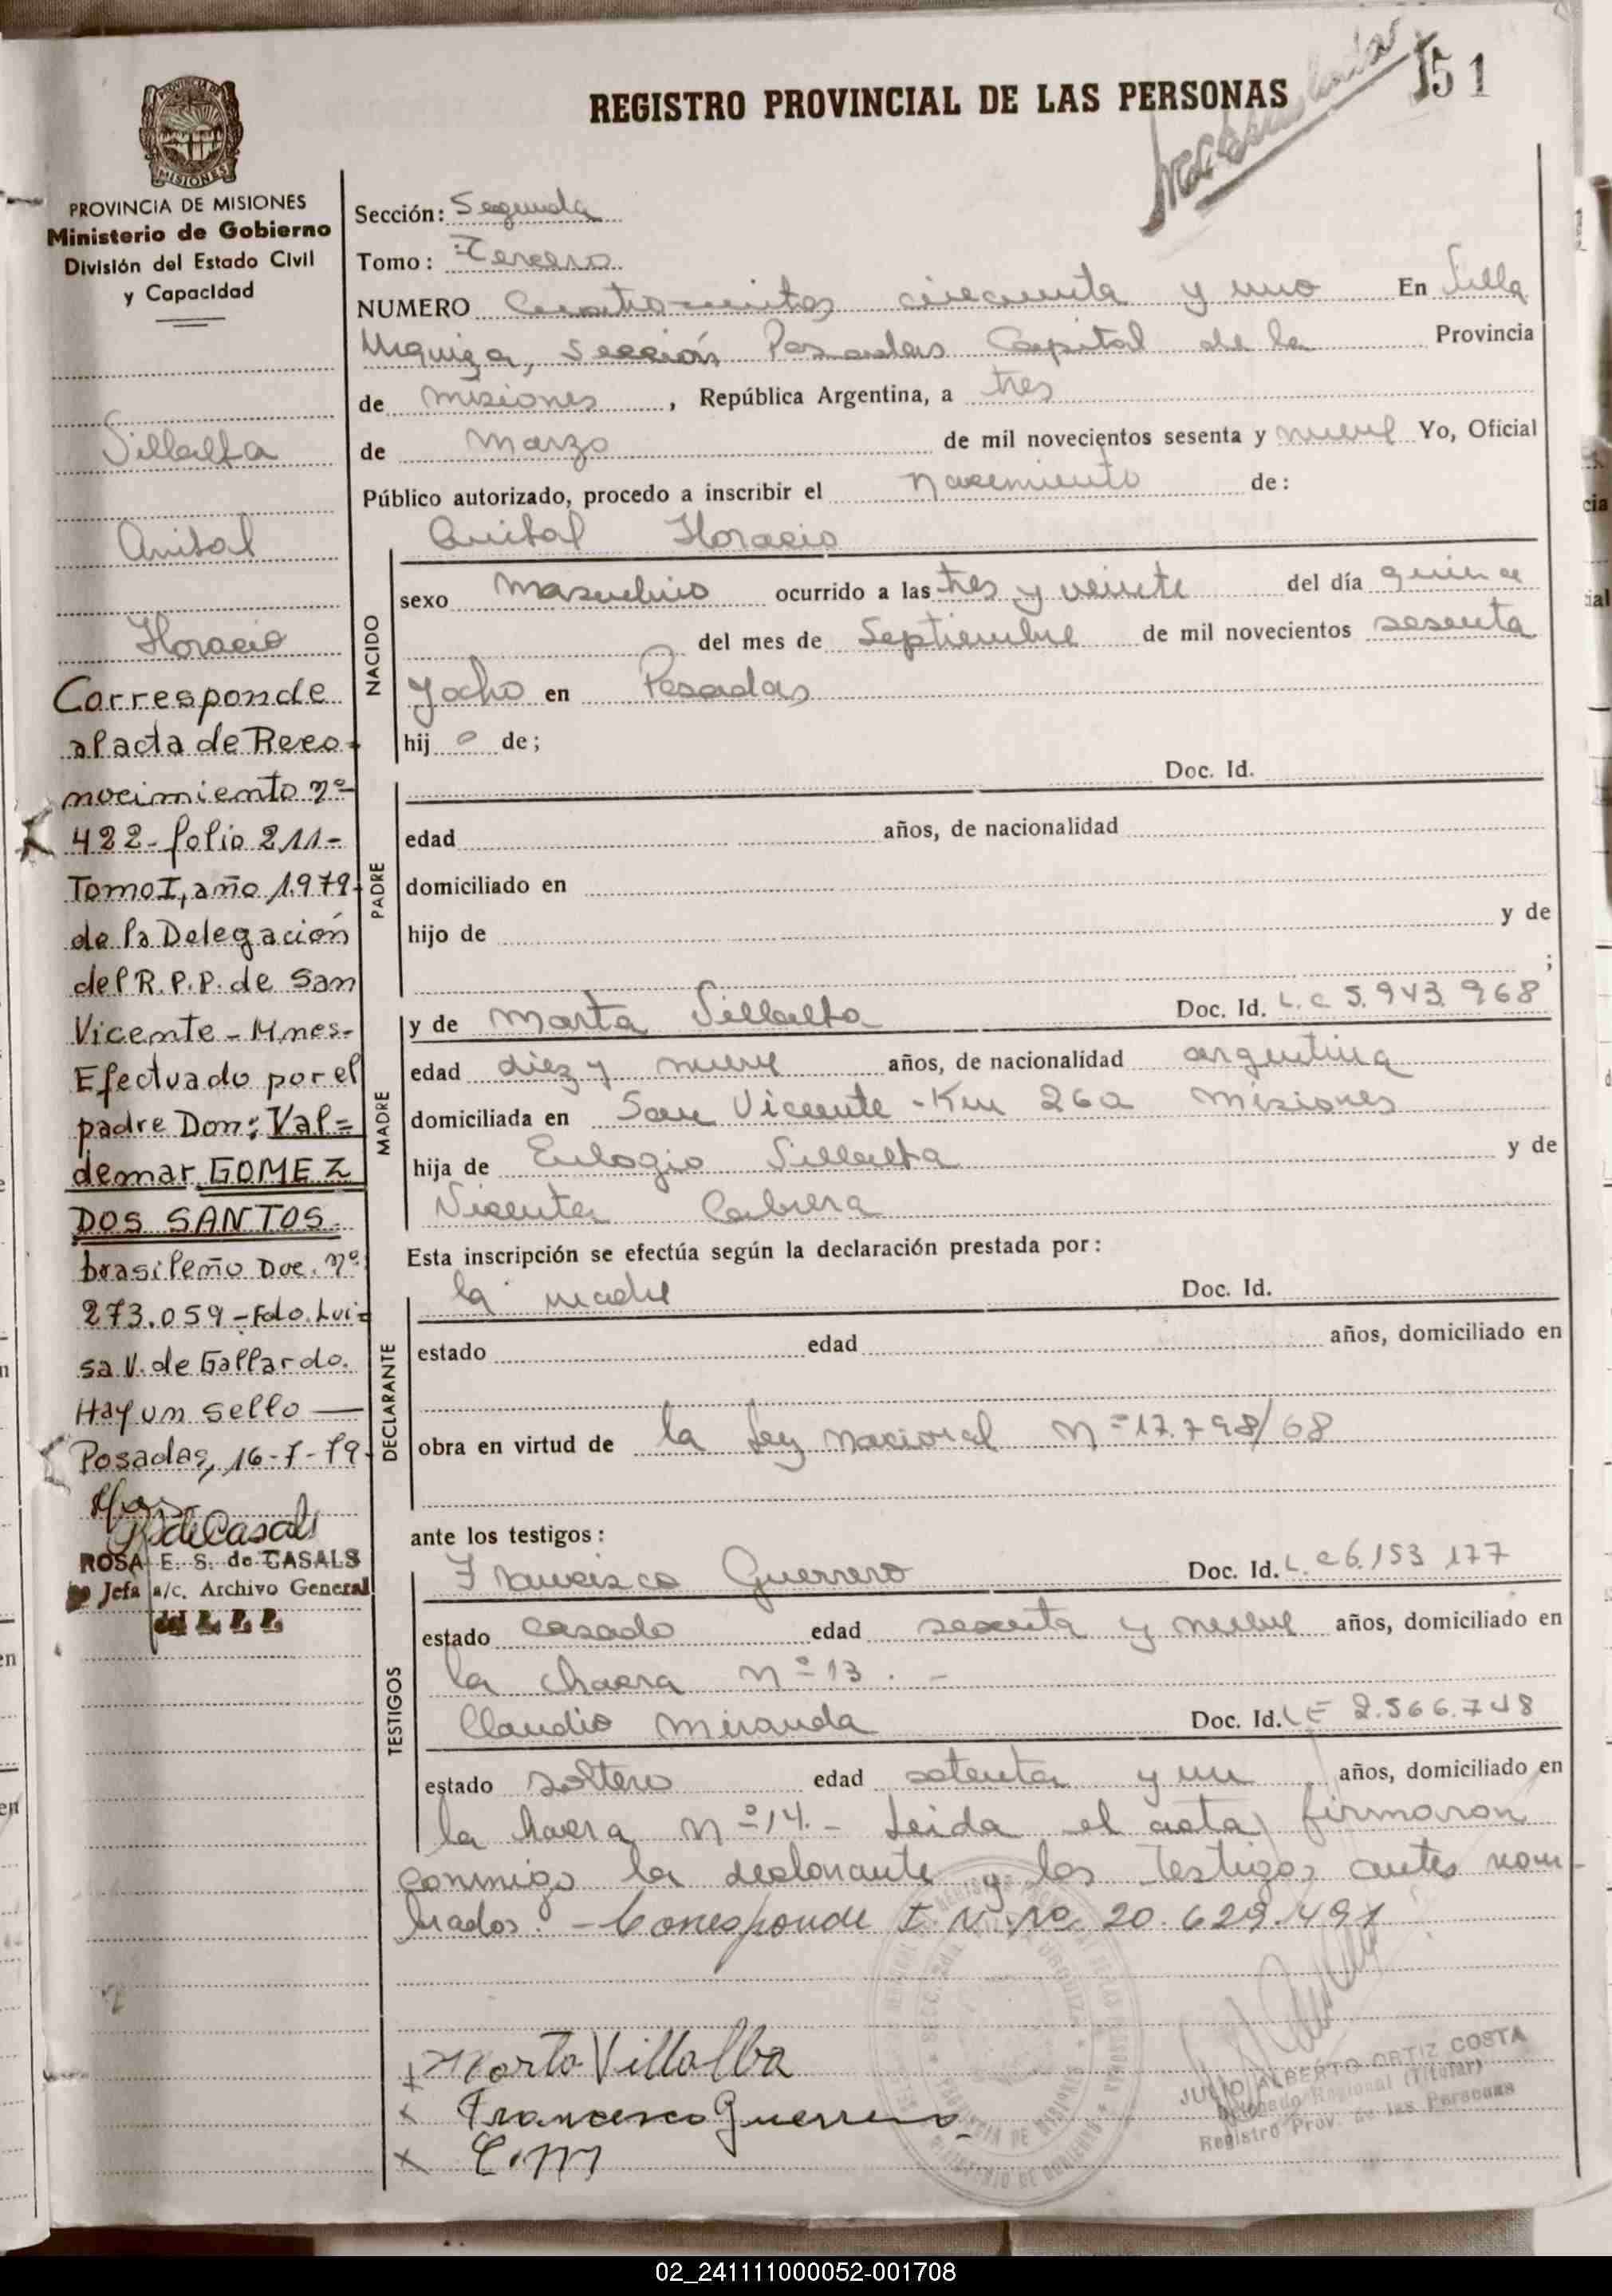 151
REGISTRO PROVINCIAL DE LAS PERSONAS
PROVINCIA DE MISIONES
Ministerio de Gobierno
División del Estado Civil
y Capacidad
Villalba
Anibal
Horacio
Corresponde
al acta de Reco-
nocimiento nº
422-folio 211-
Tomo I, año 1979-
de la Delegación
del R.P.P. de San
Vicente - Mnes-
Efectuado por el
padre Don: Val=
demar GOMEZ
DOS SANTOS.
brasileño Doc. nº
273.059 - Fdo. Lui=
sa V. de Gallardo.
Hay un sello —
Posadas, 16-7-79-
ROSA E. S. de CASALS
Jefa a/c. Archivo General
del R. P. P.
Sección: Segunda
Tomo: Tercero
NUMERO Cuatrocientos cincuenta y uno En Villa
Urquiza, Sección Posadas Capital de la Provincia
de Misiones, República Argentina, a tres
de Marzo de mil novecientos sesenta y nueve Yo, Oficial
Público autorizado, procedo a inscribir el nacimiento de:
Anibal Horacio
NACIDO
sexo Masculino ocurrido a las tres y veinte del día quince
del mes de Septiembre de mil novecientos sesenta
y ocho en Posadas
hijo de;
PADRE
Doc. Id.
edad años, de nacionalidad
domiciliado en
hijo de y de
;
MADRE
y de Marta Villalba Doc. Id. L.C 5.943.968
edad diez y nueve años, de nacionalidad argentina
domiciliada en San Vicente - Km 260 Misiones
hija de Eulogio Villalba y de
Vicenta Cabrera
Esta inscripción se efectúa según la declaración prestada por:
DECLARANTE
la madre Doc. Id.
estado edad años, domiciliado en
obra en virtud de la Ley nacional Nº 17.798/68
ante los testigos:
TESTIGOS
Francisco Guerrero Doc. Id. L. C 6.153 177
estado casado edad sesenta y nueve años, domiciliado en
la chacra Nº 13. -
Claudio Miranda Doc. Id. LE 2.566.748
estado soltero edad setenta y un años, domiciliado en
la chacra Nº 14. - Leida el acta, firmaron
conmigo la declarante y los testigos antes nom-
brados. - Corresponde I. N. Nº 20.629.491
x Marta Villalba
x Francisco Guerrero
x C.M
JULIO ALBERTO ORTIZ COSTA
Delegado Regional (Titular)
Registro Prov. de las Personas
02_241111000052-001708